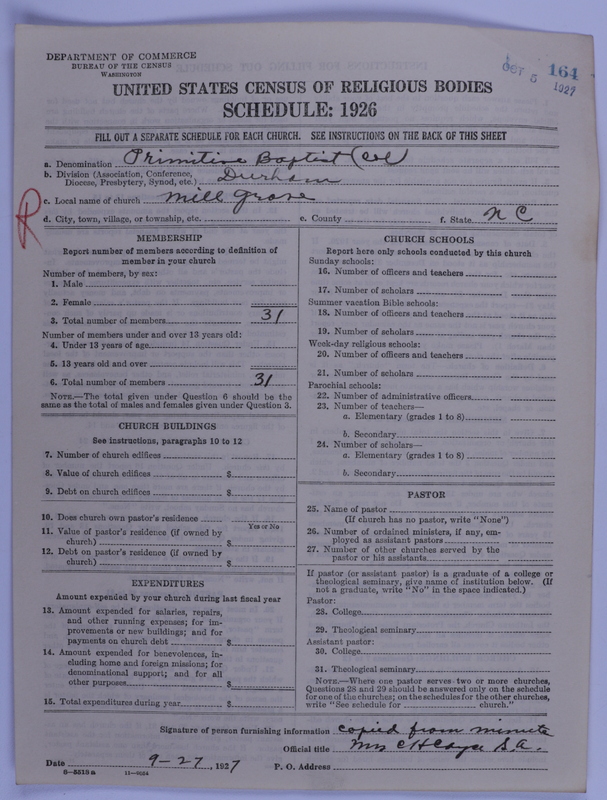 DEPARTMENT OF COMMERCE
BUREAU OF THE CENSUS
WASHINGTON
OCT 5 1927
164
UNITED STATES CENSUS OF RELIGIOUS BODIES
SCHEDULE: 1926
FILL OUT A SEPARATE SCHEDULE FOR EACH CHURCH. SEE INSTRUCTIONS ON THE BACK OF THIS SHEET
a. Denomination Primitive Baptist (Col)
b. Division (Association, Conference,
Diocese, Presbytery, Synod, etc.) Durham
R
c. Local name of church Mill Grove
d. City, town, village, or township, etc. e. County f. State N C
MEMBERSHIP
Report number of members according to definition of
member in your church
Number of members, by sex:
1. Male
2. Female
3. Total number of members 31
Number of members under and over 13 years old:
4. Under 13 years of age
5. 13 years old and over
6. Total number of members 31
NOTE.—The total given under Question 6 should be the
same as the total of males and females given under Question 3.
CHURCH BUILDINGS
See instructions, paragraphs 10 to 12
7. Number of church edifices
8. Value of church edifices $
9. Debt on church edifices $
10. Does church own pastor's residence
Yes or No
11. Value of pastor's residence (if owned by
church) $
12. Debt on pastor's residence (if owned by
church) $
EXPENDITURES
Amount expended by your church during last fiscal year
13. Amount expended for salaries, repairs,
and other running expenses; for im-
provements or new buildings; and for
payments on church debt $
14. Amount expended for benevolences, in-
cluding home and foreign missions; for
denominational support; and for all
other purposes $
15. Total expenditures during year $
CHURCH SCHOOLS
Report here only schools conducted by this church
Sunday schools:
16. Number of officers and teachers
17. Number of scholars
Summer vacation Bible schools:
18. Number of officers and teachers
19. Number of scholars
Week-day religious schools:
20. Number of officers and teachers
21. Number of scholars
Parochial schools:
22. Number of administrative officers
23. Number of teachers—
a. Elementary (grades 1 to 8)
b. Secondary
24. Number of scholars—
a. Elementary (grades 1 to 8)
b. Secondary
PASTOR
25. Name of pastor
(If church has no pastor, write "None")
26. Number of ordained ministers, if any, em-
ployed as assistant pastors
27. Number of other churches served by the
pastor or his assistants
If pastor (or assistant pastor) is a graduate of a college or
theological seminary, give name of institution below. (If
not a graduate, write "No" in the space indicated.)
Pastor:
28. College
29. Theological seminary
Assistant pastor:
30. College
31. Theological seminary
NOTE.—Where one pastor serves two or more churches,
Questions 28 and 29 should be answered only on the schedule
for one of the churches; on the schedules for the other churches,
write "See schedule for church."
Signature of person furnishing information copied from minute
Official title Mrs C H Cayce S.A.
Date 9-27, 1927 P. O. Address
8-5518a 11-9664